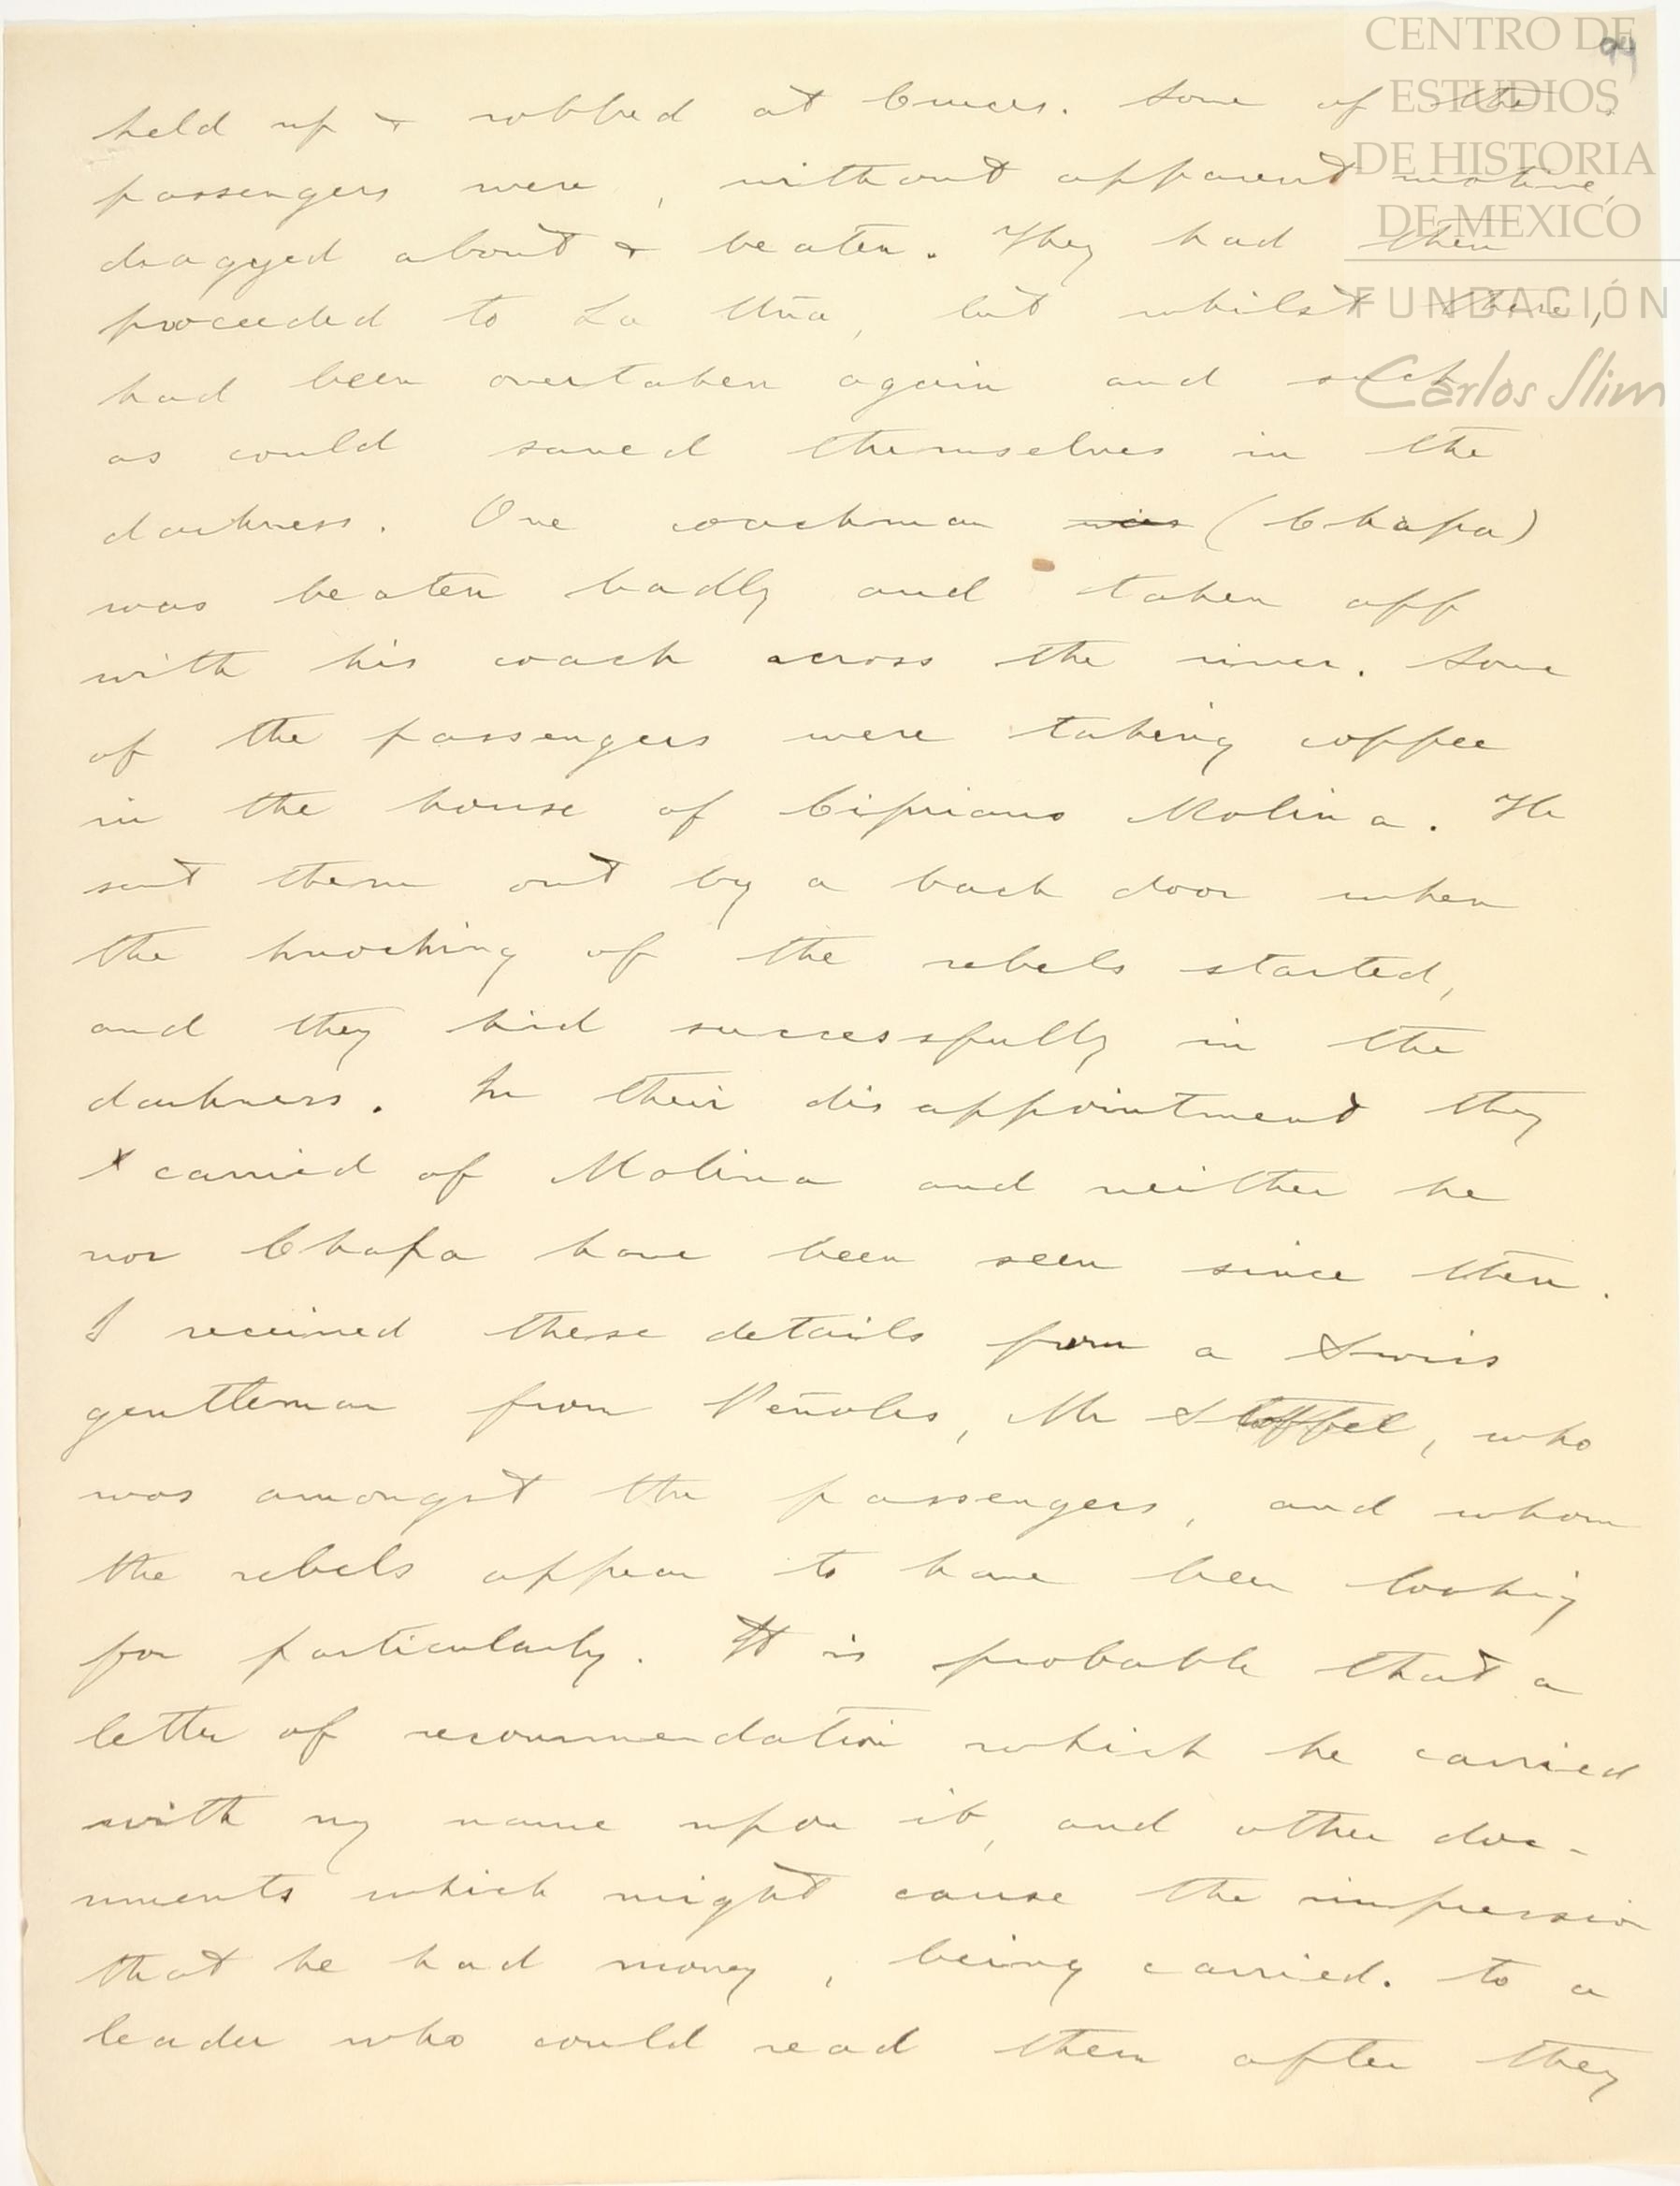 CENTRO DE
ESTUDIOS
DE HISTORIA
DE MEXICO
FUNDACIÓN
Carlos Slim
94
held up & robbed at Cruces. Some of the
passengers were, without apparent motive,
dragged about & beaten. They had then
proceeded to La Uña, but whilst there,
had been overtaken again and such
as could saved themselves in the
darkness. One coachman was (Chapa)
was beaten badly and taken off
with his coach across the river. Some
of the passengers were taking coffee
in the house of Cipriano Molina. He
sent them out by a back door when
the knocking of the rebels started,
and they hid successfully in the
darkness. In their disappointment they
x carried of Molina and neither he
nor Chapa have been seen since then.
I received these details from a Swiss
gentleman from Peñoles, Mr Stoffel, who
was amongst the passengers, and whom
the rebels appear to have been looking
for particularly. It is probable that a
letter of recommendation which he carried
with my name upon it, and other doc-
uments which might cause the impression
that he had money, being carried. to a
leader who could read them after they